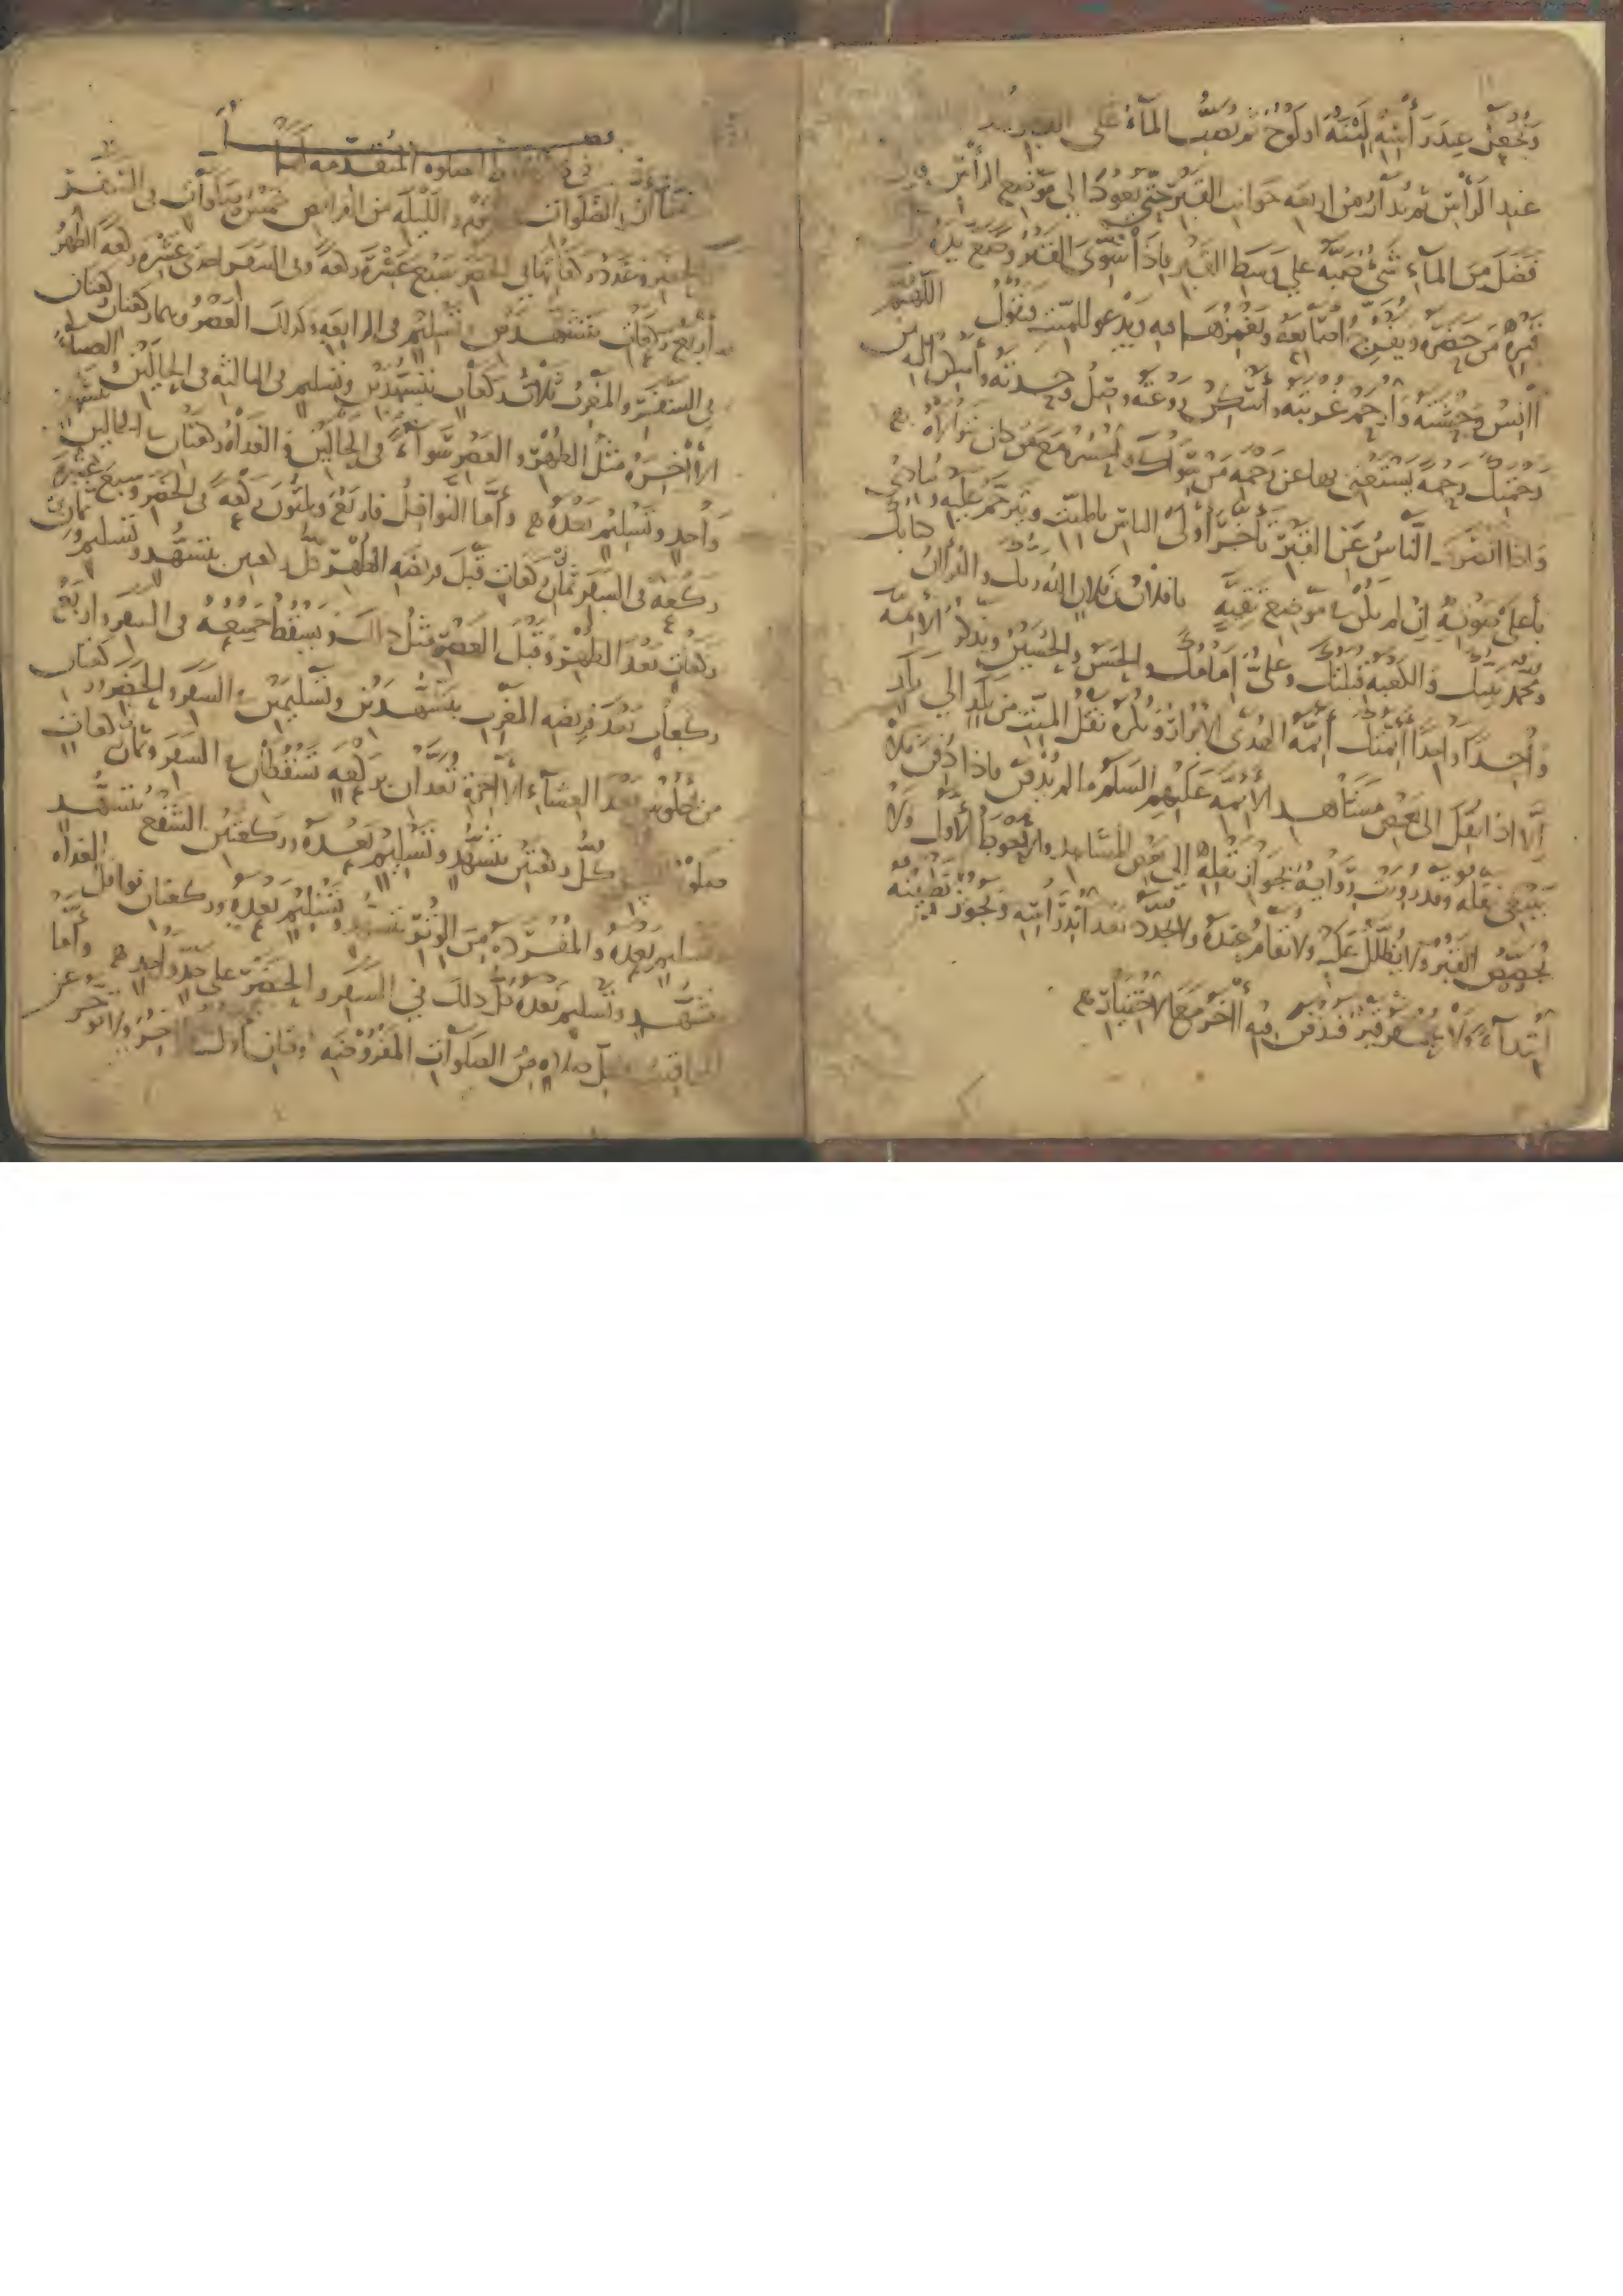 ويجعل عند رأسه لبنة او لوح ثم يصب الماء على القبر
عند الرأس ثم يدار من اربعة جوانب القبر حتى يعود الى موضع الرأس فان
فضل من الماء شئ صبه على وسط القبر فاذا سوى القبر وضع يده
قبره من حضره ويفرج اصابعه ويغمزها فيه ويدعو للميت فيقول اللهم
آنس وحشته وارحم غربته واسكن روعته وصل وحدته واسكن اليه من
رحمتك رحمة يستغنى بها عن رحمة من سواك واحشره مع من كان يتولاه
واذا انصرف الناس عن القبر تأخر اولى الناس بالميت وترحم عليه وينادى
بأعلى صوته ان لم يكن في موضع تقية يا فلان بن فلان الله ربك والقرآن كتابك
ومحمد نبيك والكعبة قبلتك وعلى امامك والحسن والحسين ويذكر الأئمة
واحدا واحدا أئمتك أئمة الهدى الابرار ويكره نقل الميت من بلد الى بلد
إلا اذا نقل الى بعض مشاهد الأئمة عليهم السلم ما لم يدفن فاذا دفن فلا
ينبغى نقله وقد رويت رواية بجواز نقله إلى بعض المشاهد والاحوط الأول ولا
يجصص القبر ولا يظلل عليه ولا يقام عنده ولا يجدد بعد اندراسه ويجوز تطيينه
ابتداء ولا يحفر قبر قد دفن فيه آخر مع الاختيار
فصل
في الصلوة المتقدمة
الصلوات في اليوم والليلة من الفرايض خمس صلوات في السفر
والحضر وعدد ركعاتها في الحضر سبع عشرة ركعة وفي السفر احدى عشرة ركعة الظهر
أربع ركعات بتشهدين وتسليم في الرابعة وكذلك العصر وهما ركعتان ركعتان
في السفر والمغرب ثلاث ركعات بتشهدين وتسليم في الثالثة في الحالين العشاء
الآخرة مثل الظهر والعصر سواء في الحالين والغداة ركعتان في الحالين بتشهد
واحد وتسليم بعده وأما النوافل فاربع وثلثون ركعة في الحضر وسبع عشرة
ركعة في السفر ثمان ركعات قبل فريضة الظهر كل ركعتين بتشهد وتسليم وثمان
ركعات بعد الظهر وقبل العصر مثل ذلك ويسقط جميعه في السفر واربع
ركعات بعد فريضة المغرب بتشهدين وتسليمين في السفر والحضر وركعتان
من جلوس بعد العشاء الآخرة تعدان بركعة تسقطان في السفر وثمان ركعات
صلوة كل ركعتين بتشهد وتسليم بعده وركعتين الشفع بتشهد
وتسليم بعده والمفردة من الوتر بتشهد وتسليم بعده وركعتان نوافل الغداة
بتشهد وتسليم بعده كل ذلك في السفر والحضر على حد واحد وأما
المواقيت فلكل صلاة من الصلوات المفروضة وقتان أول وآخر ولا تؤخر عن